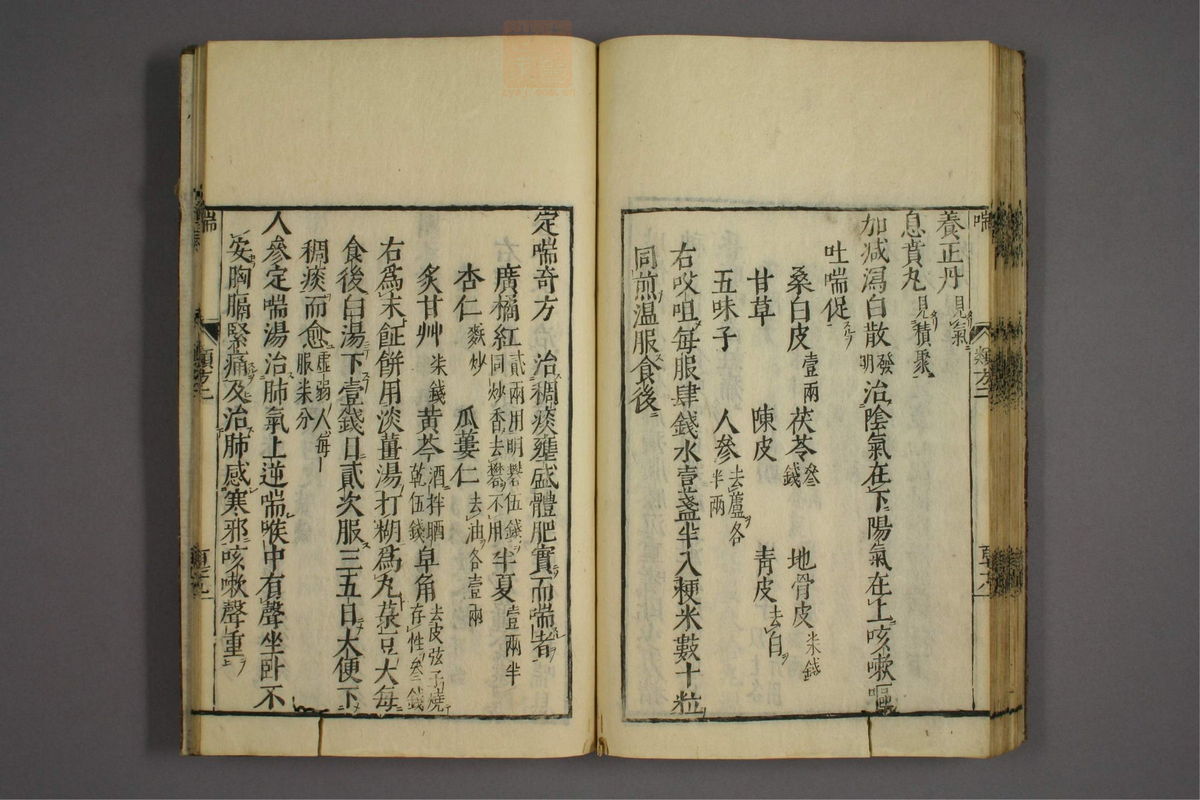 養正丹見氣
息賁丸見積聚
加減瀉白散發明治陰氣在下陽氣在上咳嗽嘔
吐喘促
桑白皮壹兩茯苓叄錢地骨皮柒錢
甘草 陳皮 青皮去白
五味子 人參去蘆各半兩
右㕮咀每服肆錢水壹盞半入粳米數十粒
同煎溫服食後
定喘奇方 治稠痰壅盛體肥實而喘者
廣橘紅貳兩用明礬伍錢同炒香去礬不用半夏壹兩半
杏仁麩炒 瓜蔞仁去油各壹兩
炙甘艸柒錢黃芩酒拌晒乾伍錢皁角去皮弦子燒存性叄錢
右爲末蒸餅用淡薑湯打糊爲丸菉豆大每
食後白湯下壹錢日貳次服三五日大便下
稠痰而愈虛弱人每服柒分
人參定喘湯治肺氣上逆喘喉中有聲坐卧不
安胸膈緊痛及治肺感寒邪咳嗽聲重
喘
喘